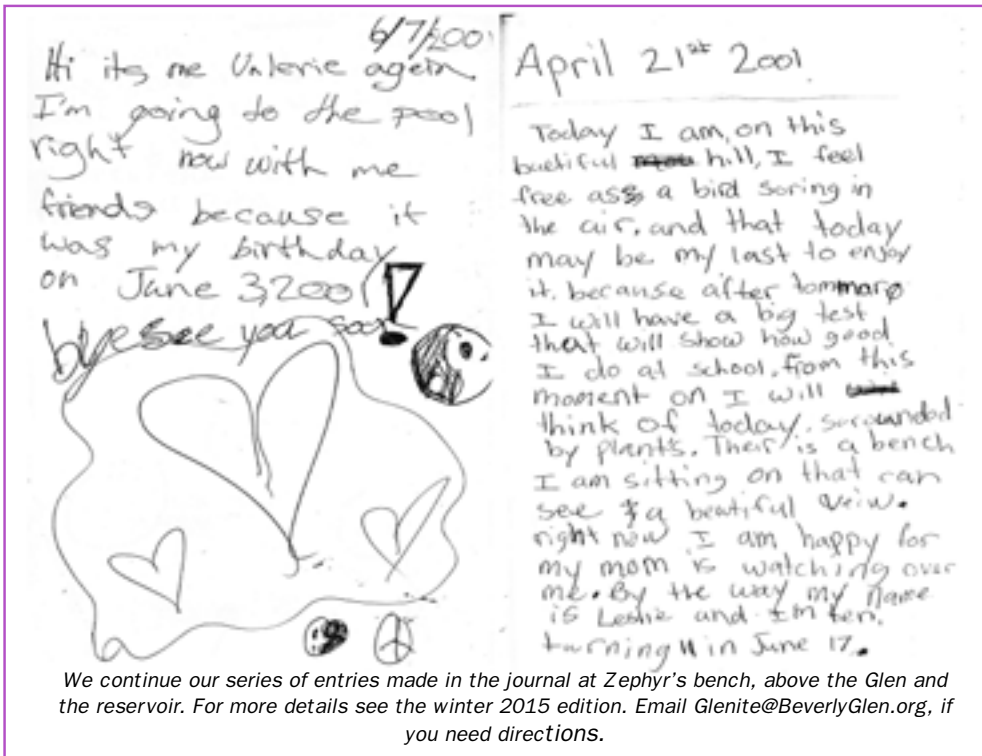 6/7/2001
Hi its me Valerie again
I'm going to the pool
right now with me
friends because it
was my birthday
on June 3, 2001!
bye see you soon
April 21st 2001
Today I am, on this
buetiful hill, I feel
free ass a bird soring in
the air. and that today
may be my last to enjoy
it. because after tommaro
I will have a big test
that will show how good
I do at school. from this
moment on I will
think of today. sorounded
by plants. Their is a bench
I am sitting on that can
see a beatiful veiw.
right now I am happy for
my mom is watching over
me. By the way my name
is Leslie and I'm ten.
turning 11 in June 17.
We continue our series of entries made in the journal at Zephyr's bench, above the Glen and
the reservoir. For more details see the winter 2015 edition. Email Glenite@BeverlyGlen.org, if
you need directions.